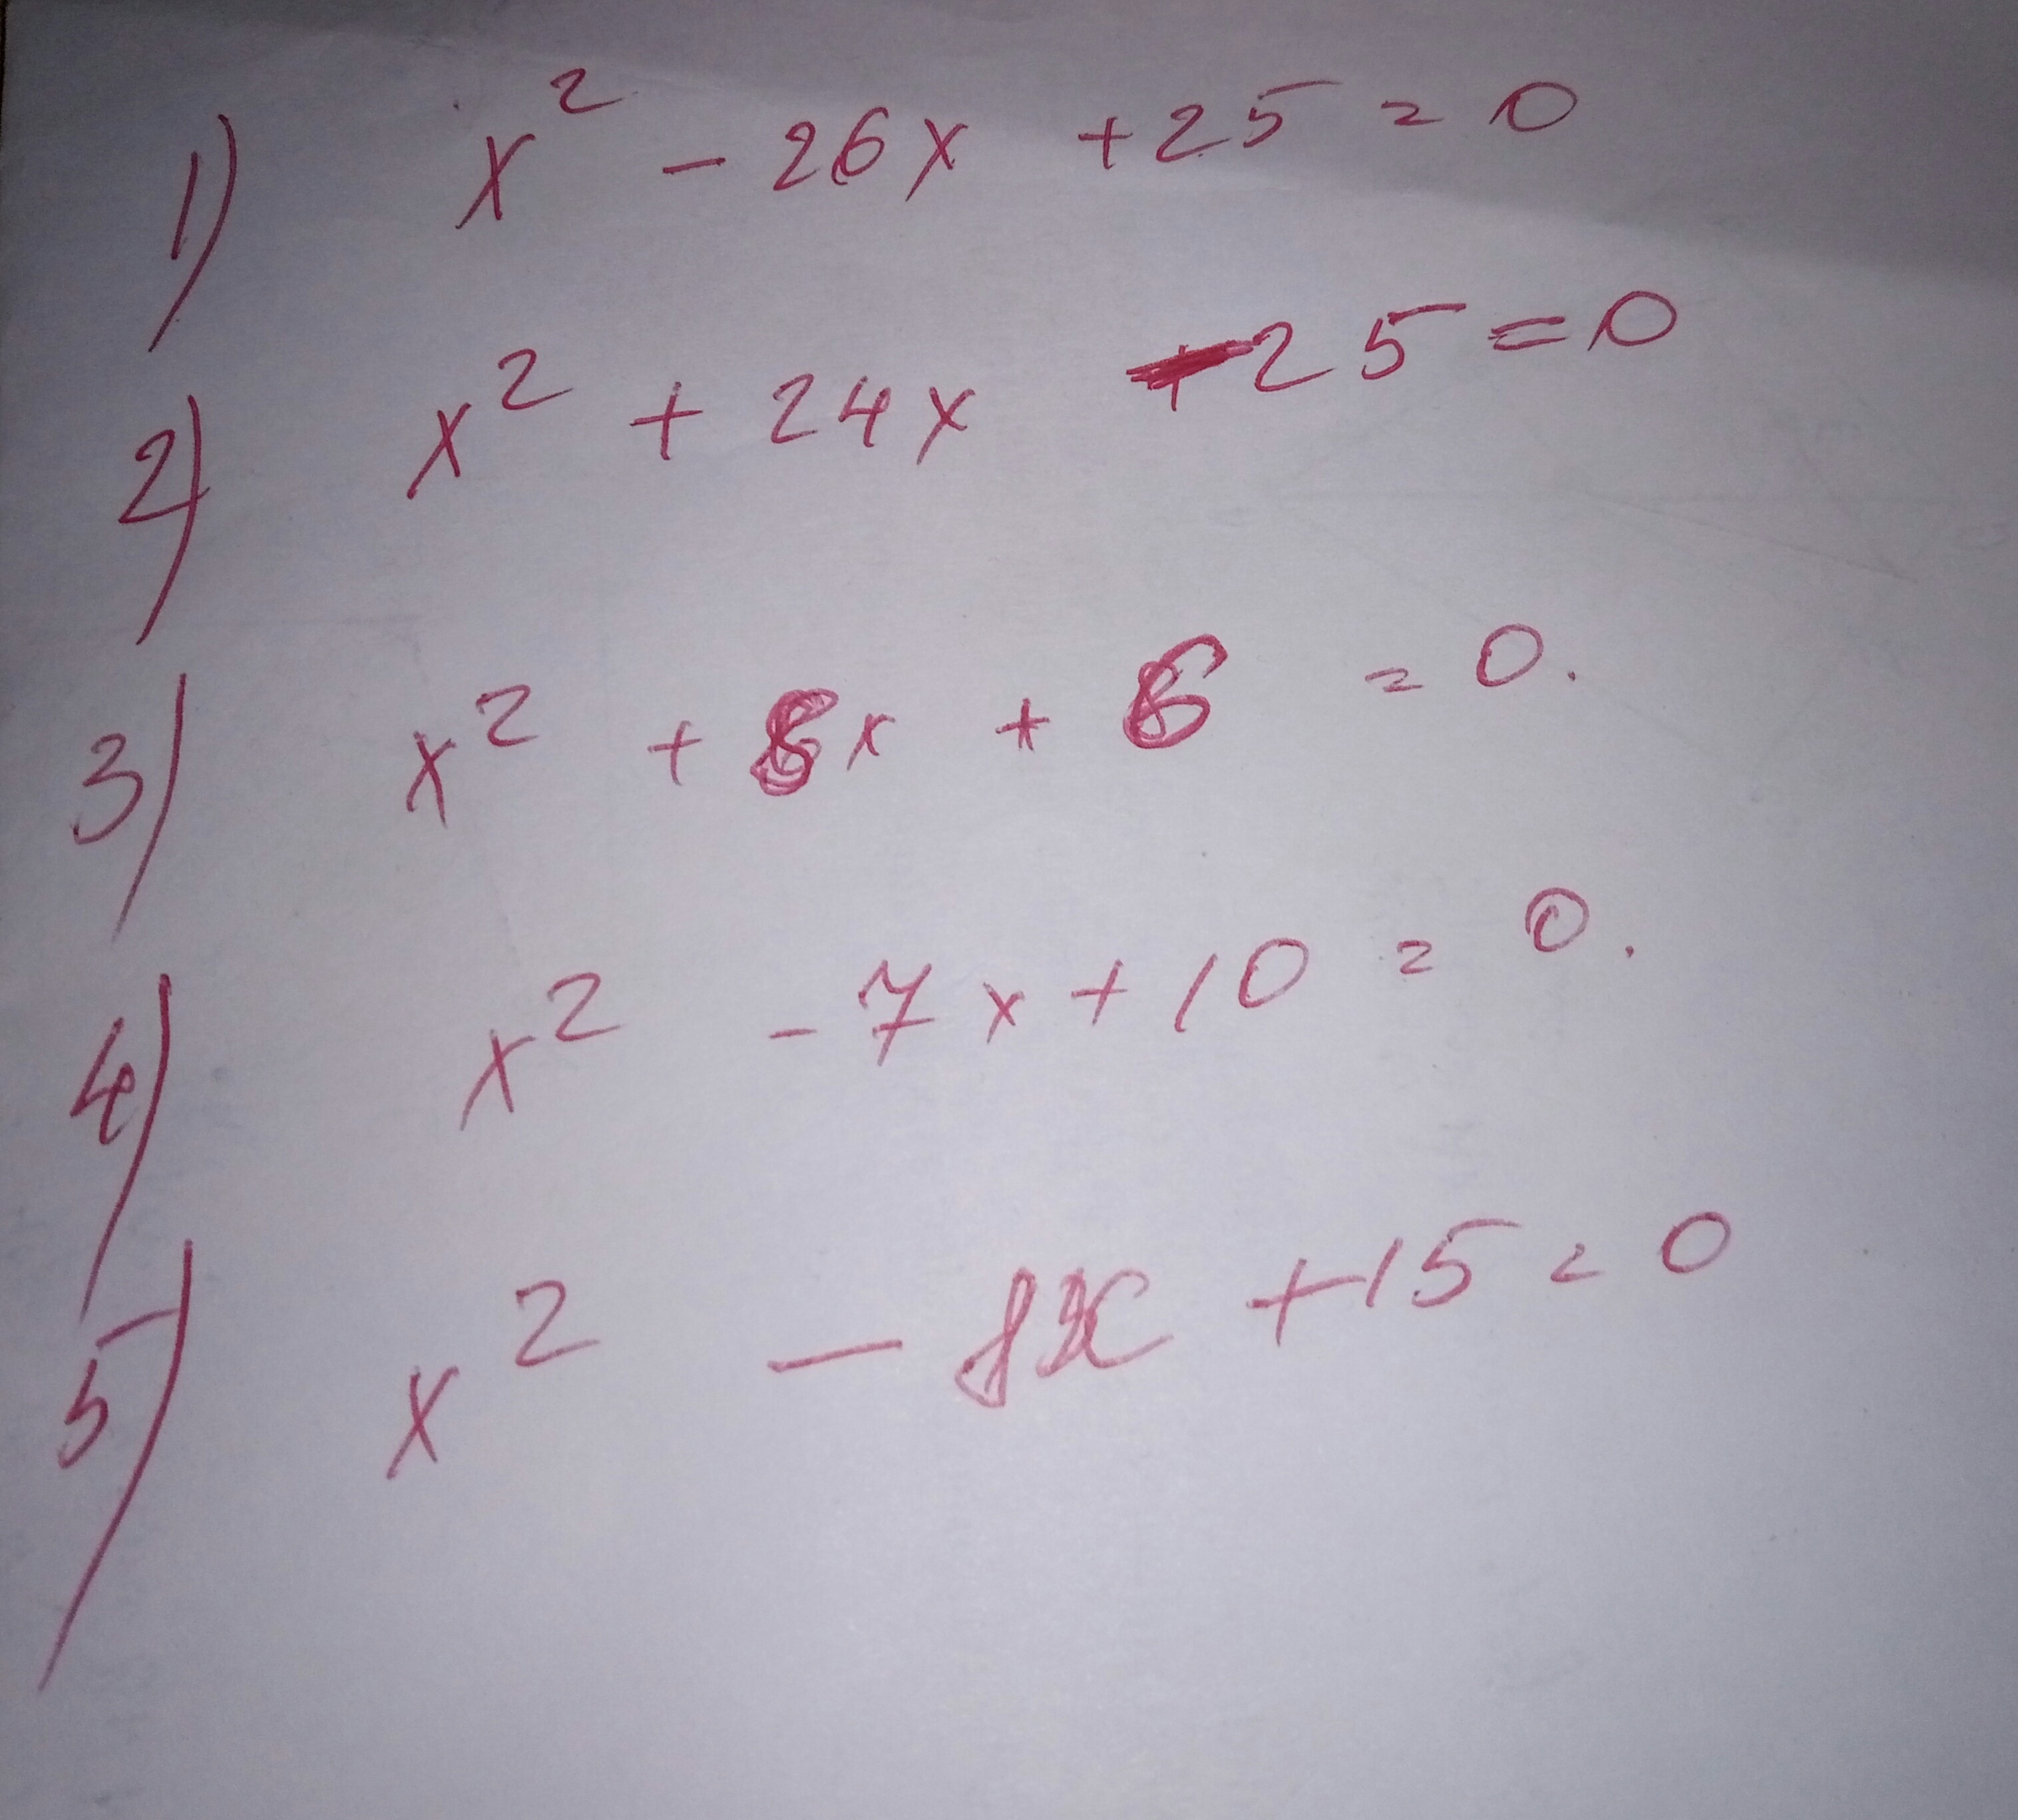 1) x² - 26x + 25 = 0
2) x² + 24x - 25 = 0
3) x² + 5x + 6 = 0.
4) x² - 7x + 10 = 0.
5) x² - 8x + 15 = 0